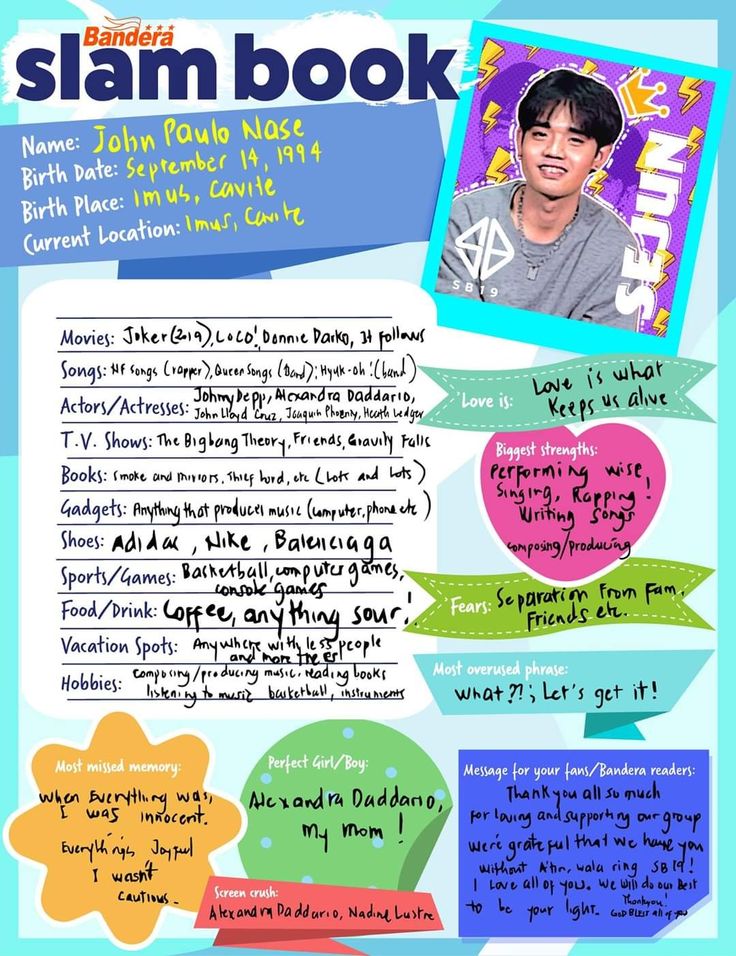 Bandera
slam book
Name: John Paulo Nase
Birth Date: September 14, 1994
Birth Place: Imus, Cavite
Current Location: Imus, Cavite
SEJUN
SB19
Movies: Joker (2019), LoCO!, Donnie Darko, It follows
Songs: NF songs (rapper), Queen Songs (Band); Hyuk-oh! (band)
Actors/Actresses: Johny Depp, Alexandra Daddario,
John Lloyd Cruz, Joaquin Phoenty, Heath Ledger
T.V. Shows: The Bigbang Theory, Friends, Gravity Falls
Books: Smoke and mirrors, Thief Lord, etc (Lots and lots)
Gadgets: Anything that produces music (computer, phone etc)
Shoes: Adidas, Nike, Balenciaga
Sports/Games: Basketball, computer games,
console games
Food/Drink: Coffee, anything sour!
Vacation Spots: Anywhere with less people
and more trees!
Hobbies: composing/producing music, reading books
listening to music basketball, instruments
Love is: Love is what
keeps us alive
Biggest strengths:
Performing wise,
Singing, Rapping!
Writing songs
composing/producing
Fears: Separation from fam,
Friends etc.
Most overused phrase:
What??; Let's get it!
Most missed memory:
When Everything was,
I was innocent.
Everything's Joyful
I wasn't
cautious.
Perfect Girl/Boy:
Alexandra Daddario,
My Mom!
Screen crush:
Alexandra Daddario, Nadine Lustre
Message for your fans/Bandera readers:
Thank you all so much
for loving and supporting our group
We're grateful that we have you
without A'tin, wala ring SB19!
I love all of you. We will do our Best
to be your light. Thankyou!
GOD BLESS all of you